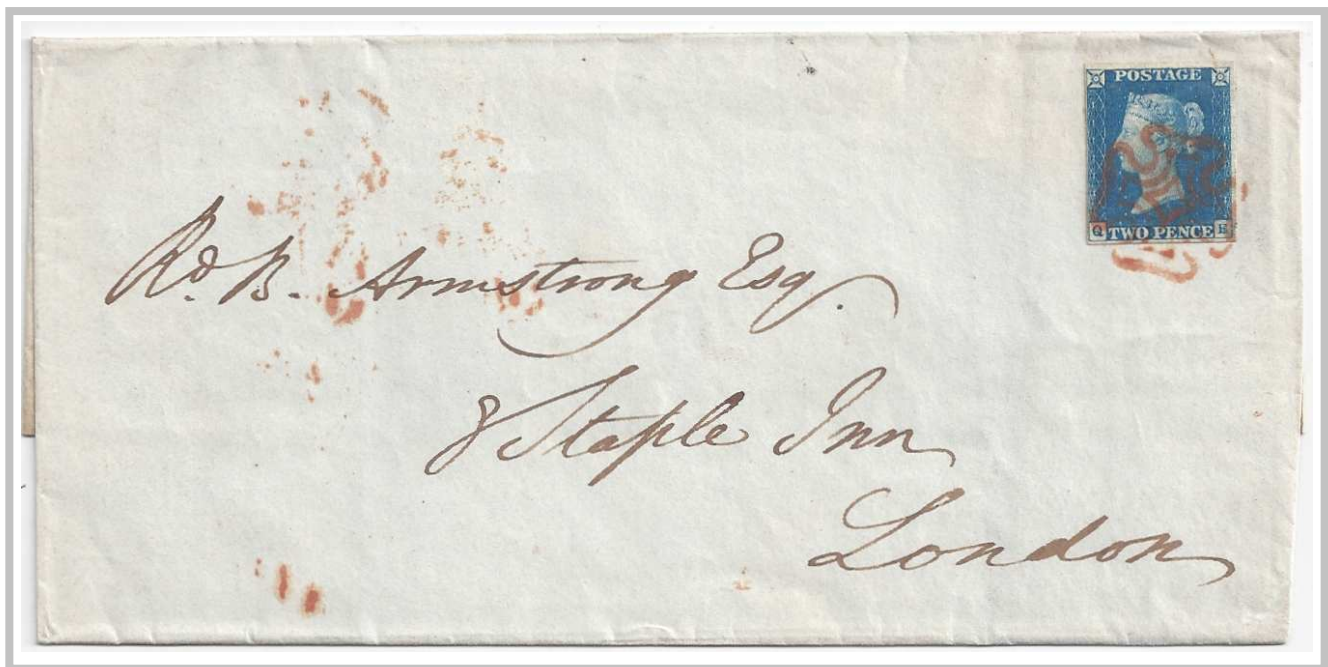 POSTAGE
Q TWO PENCE E
Rd. B. Armstrong Esq.
8 Staple Inn
London